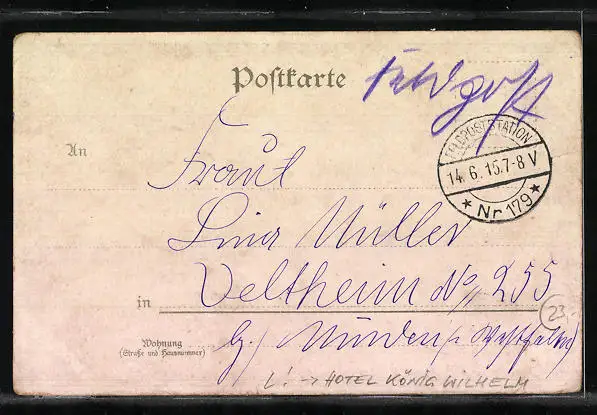 Postkarte
Feldpost
FELDPOSTSTATION
14.6.15.7-8 V
* Nr. 179 *
An
Fräul
Lina Müller
in Veltheim No 255
b/ Minden i/ Westfalen
23
Wohnung
(Straße und Hausnummer)
L! → HOTEL KÖNIG WILHELM